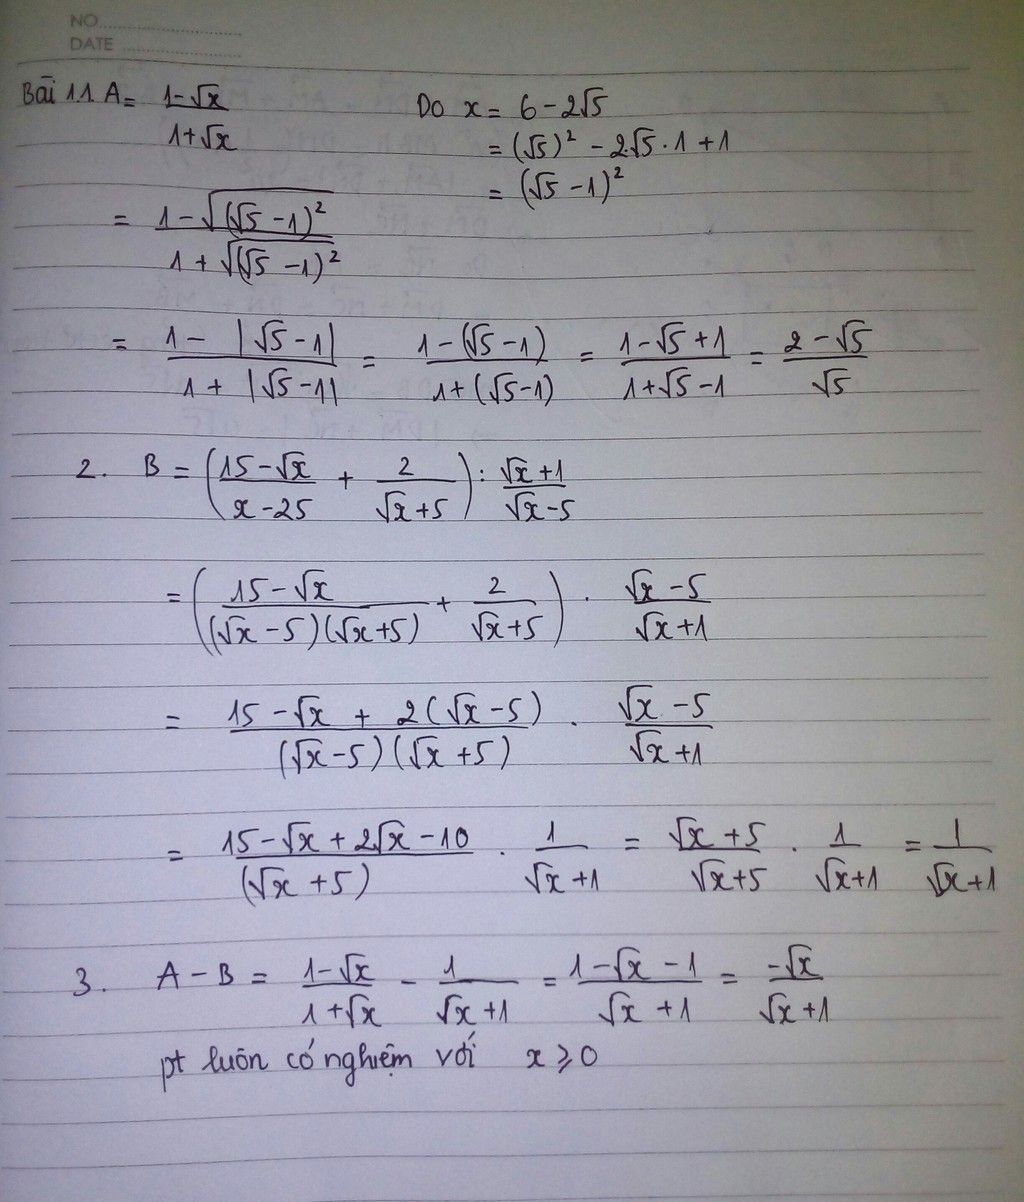 NO
DATE
Bài 1 1. A = (1-√x)/(1+√x)
Do x = 6 - 2√5
= (√5)² - 2√5 · 1 + 1
= (√5 - 1)²
= (1 - √((√5 - 1)²))/(1 + √((√5 - 1)²))
= (1 - |√5 - 1|)/(1 + |√5 - 1|) = (1 - (√5 - 1))/(1 + (√5 - 1)) = (1 - √5 + 1)/(1 + √5 - 1) = (2 - √5)/√5
2. B = ((15 - √x)/(x - 25) + 2/(√x + 5)) : (√x + 1)/(√x - 5)
= ((15 - √x)/((√x - 5)(√x + 5)) + 2/(√x + 5)) · (√x - 5)/(√x + 1)
= (15 - √x + 2(√x - 5))/((√x - 5)(√x + 5)) · (√x - 5)/(√x + 1)
= (15 - √x + 2√x - 10)/(√x + 5) · 1/(√x + 1) = (√x + 5)/(√x + 5) · 1/(√x + 1) = 1/(√x + 1)
3. A - B = (1 - √x)/(1 + √x) - 1/(√x + 1) = (1 - √x - 1)/(√x + 1) = -√x/(√x + 1)
pt luôn có nghiệm với x ⩾ 0